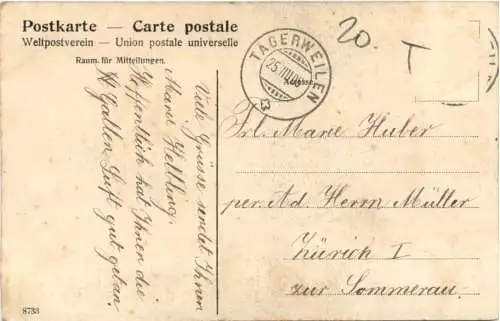 Postkarte — Carte postale
Weltpostverein — Union postale universelle
Raum für Mitteilungen.
Adresse
TÄGERWEILEN
25.VIII.
3
20.
T
Viele Grüsse sendet Ihnen
Marie Helbling.
Hoffentlich hat Ihnen die
St Gallen Luft gut getan.
Frl. Marie Huber
per Ad. Herrn Müller
Zürich I
zur Sommerau.
8733